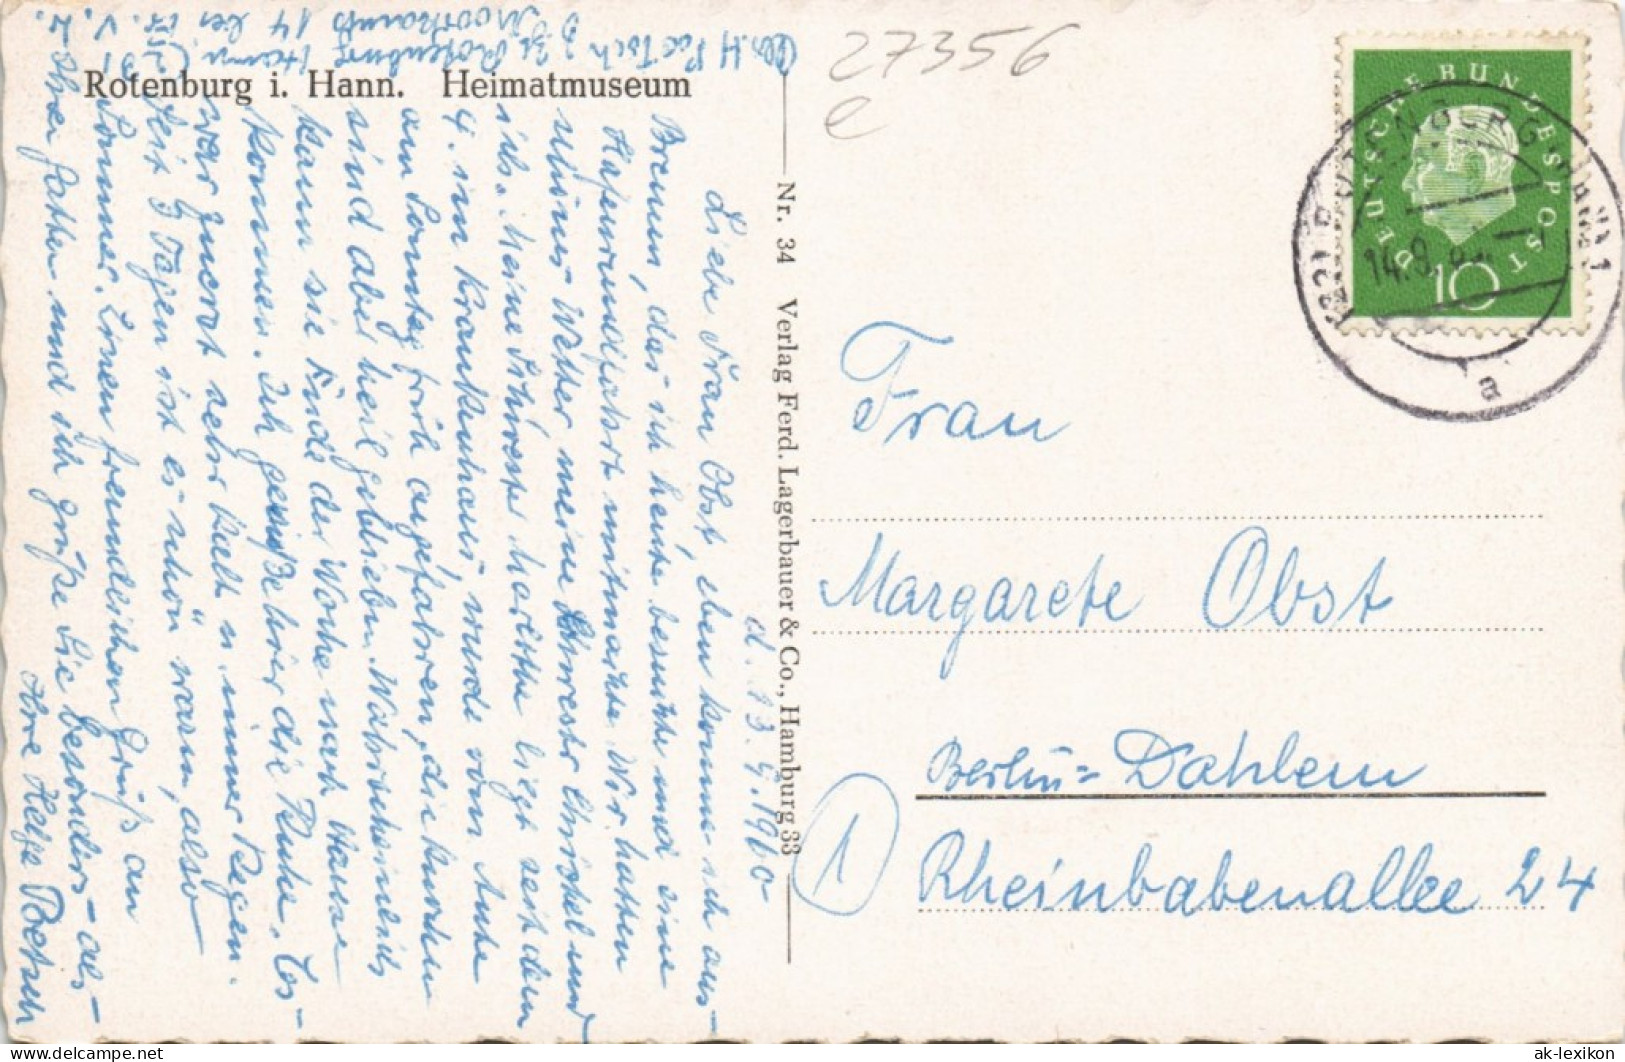 Rotenburg i. Hann. Heimatmuseum
27356
e
d. 13.9.1960
Liebe Frau Obst, eben komme ich aus
Bremen, das ich heute besuchte und eine
Hafenrundfahrt mitmachte. Wir hatten
schönes Wetter, meine Schwester Christel und
ich. Meine Schwester liegt seit dem
4. im Krankenhaus wurde vom Auto
am Sonntag früh angefahren, die Knochen
sind aber heil geblieben. Wahrscheinlich
kann sie Ende der Woche nach Hause
kommen. Ich genieße hier die Ruhe. Es
war zuerst sehr kalt u. immer Regen.
Seit 3 Tagen ist es schön warm, also
Sommer. Einen freundlichen Gruß an
Ihren Gatten und ich grüße Sie besonders als
Ihre Helga Poetsch
Nr. 34 Verlag Ferd. Lagerbauer & Co., Hamburg 33
DEUTSCHE BUNDESPOST
10
14.9.60
a
Frau
Margarete Obst
1
Berlin-Dahlem
Rheinbabenallee 24
akpool-watermark: delcampe.net
ak-lexikon